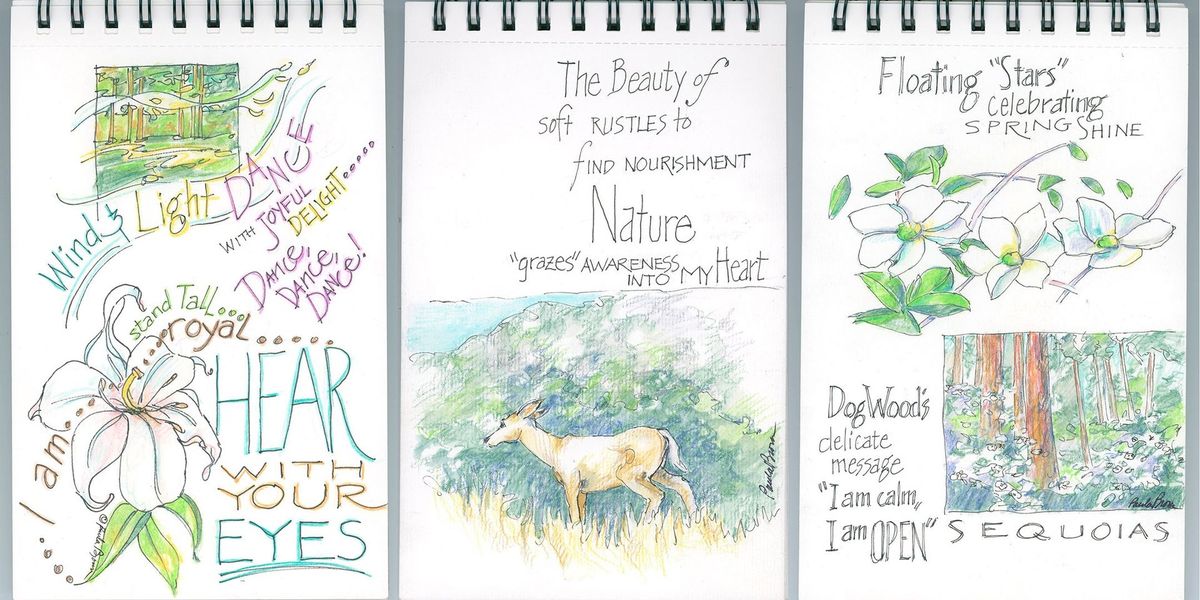 Wind & Light DANCE
WITH JOYFUL
DELIGHT.....
DANCE,
DANCE,
DANCE!
stand Tall...
...royal.....
...I am...
HEAR
WITH
YOUR
EYES
The Beauty of
soft RUSTLES to
find NOURISHMENT
Nature
"grazes" AWARENESS
INTO MY Heart
Floating "Stars"
celebrating
SPRING SHINE
DogWood's
delicate
message
"I am calm,
I am OPEN"
SEQUOIAS